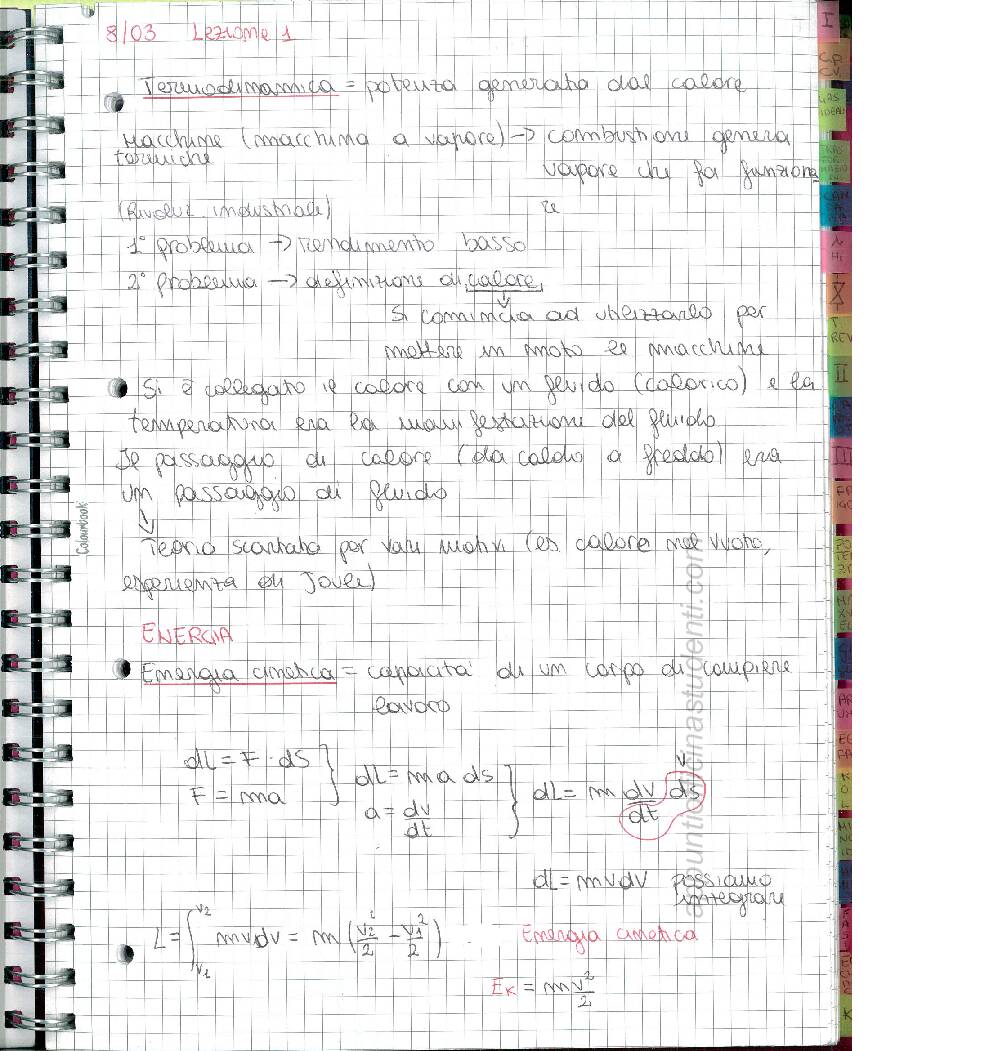 8/03 Lezione 1
Termodinamica = potenza generata dal calore
Macchine (macchina a vapore) → combustione genera
termiche
vapore che fa funziona
re
(Rivoluz. industriale)
1° problema → rendimento basso
2° problema → definizione di calore
Si comincia ad utilizzarlo per
mettere in moto le macchine
Si è collegato il calore con un fluido (calorico) e la
temperatura era la manifestazione del fluido
Il passaggio di calore (da caldo a freddo) era
un passaggio di fluido
Teoria scartata per vari motivi (es calore nel vuoto,
esperienza di Joule)
ENERGIA
Energia cinetica = capacità di un corpo di compiere
lavoro
dL = F · dS } dL = m a ds } dL = m dv/dt ds
F = ma a = dv/dt
v
dL = mvdv possiamo
integrare
L = ∫ mvdv = m (v2²/2 - v1²/2) Energia cinetica
v2
v1
Ek = m v²/2
Colourbook
appuntiofficinastudenti.com
I
CP
CV
GAS
IDEALI
II
III
T
REV
K